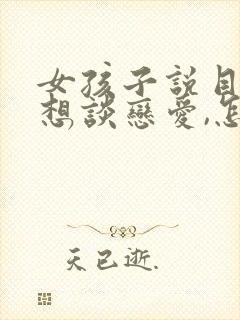 女孩子説目
想談戀愛,怎
天已逝.